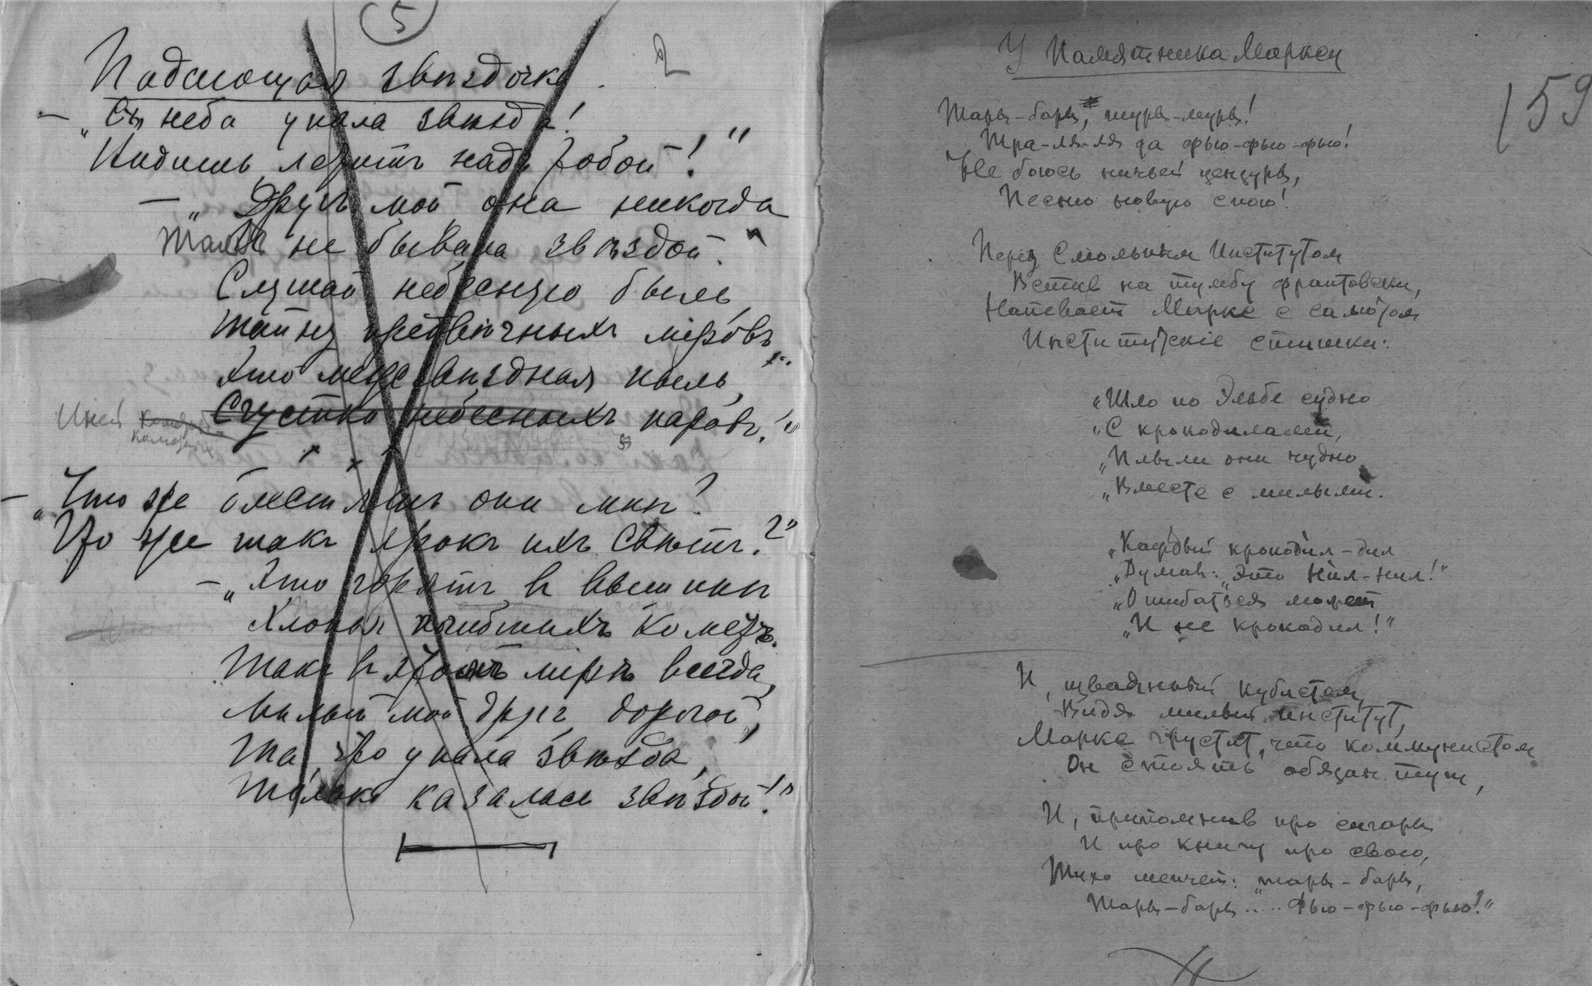 5
2
Падающая звѣздочка.
— „Съ неба упала звѣзда!
Видишь летитъ надъ тобой!"
— „Другъ мой она никогда
Тамъ не бывала звѣздой."
Слушай небесную быль,
Тайну предвѣчныхъ міровъ,
Это междузвѣздная пыль,
Иней
Сгустки небесныхъ паровъ."
— „Что же блестятъ они мнѣ?
Что же такъ ярокъ ихъ свѣтъ?"
— „Это горятъ в вышинѣ
Хлопья погибшихъ кометъ.
Такъ в этомъ мірѣ всегда,
Милый мой другъ дорогой,
Та, что упала звѣзда,
Только казалась звѣздой!"
У Памятника Марксу
159
Тары-бары, шуры-муры!
Тра-ля-ля да фью-фью-фью!
Не боюсь ничьей цензуры,
Песню новую спою!
Перед Смольным Институтом
Встав на тумбу франтовски,
Напевает Маркс с салютом
Институтскіе стишки:
„Шло по Эльбе судно
„С крокодилами,
„Плыли они чудно
„Вместе с милыми.
„Каждый крокодил-дил
„Думал: „Это Нил-Нил!"
„Ошибаться может
„И не крокодил!"
И, изваянный кубистом,
Видя милый институт,
Маркс грустит, что коммунистом
Он стоять обязан тут,
И, припомнив про сигары
И про книгу про свою,
Тихо шепчет: „тары-бары,
Тары-бары.... Фью-фью-фью!"